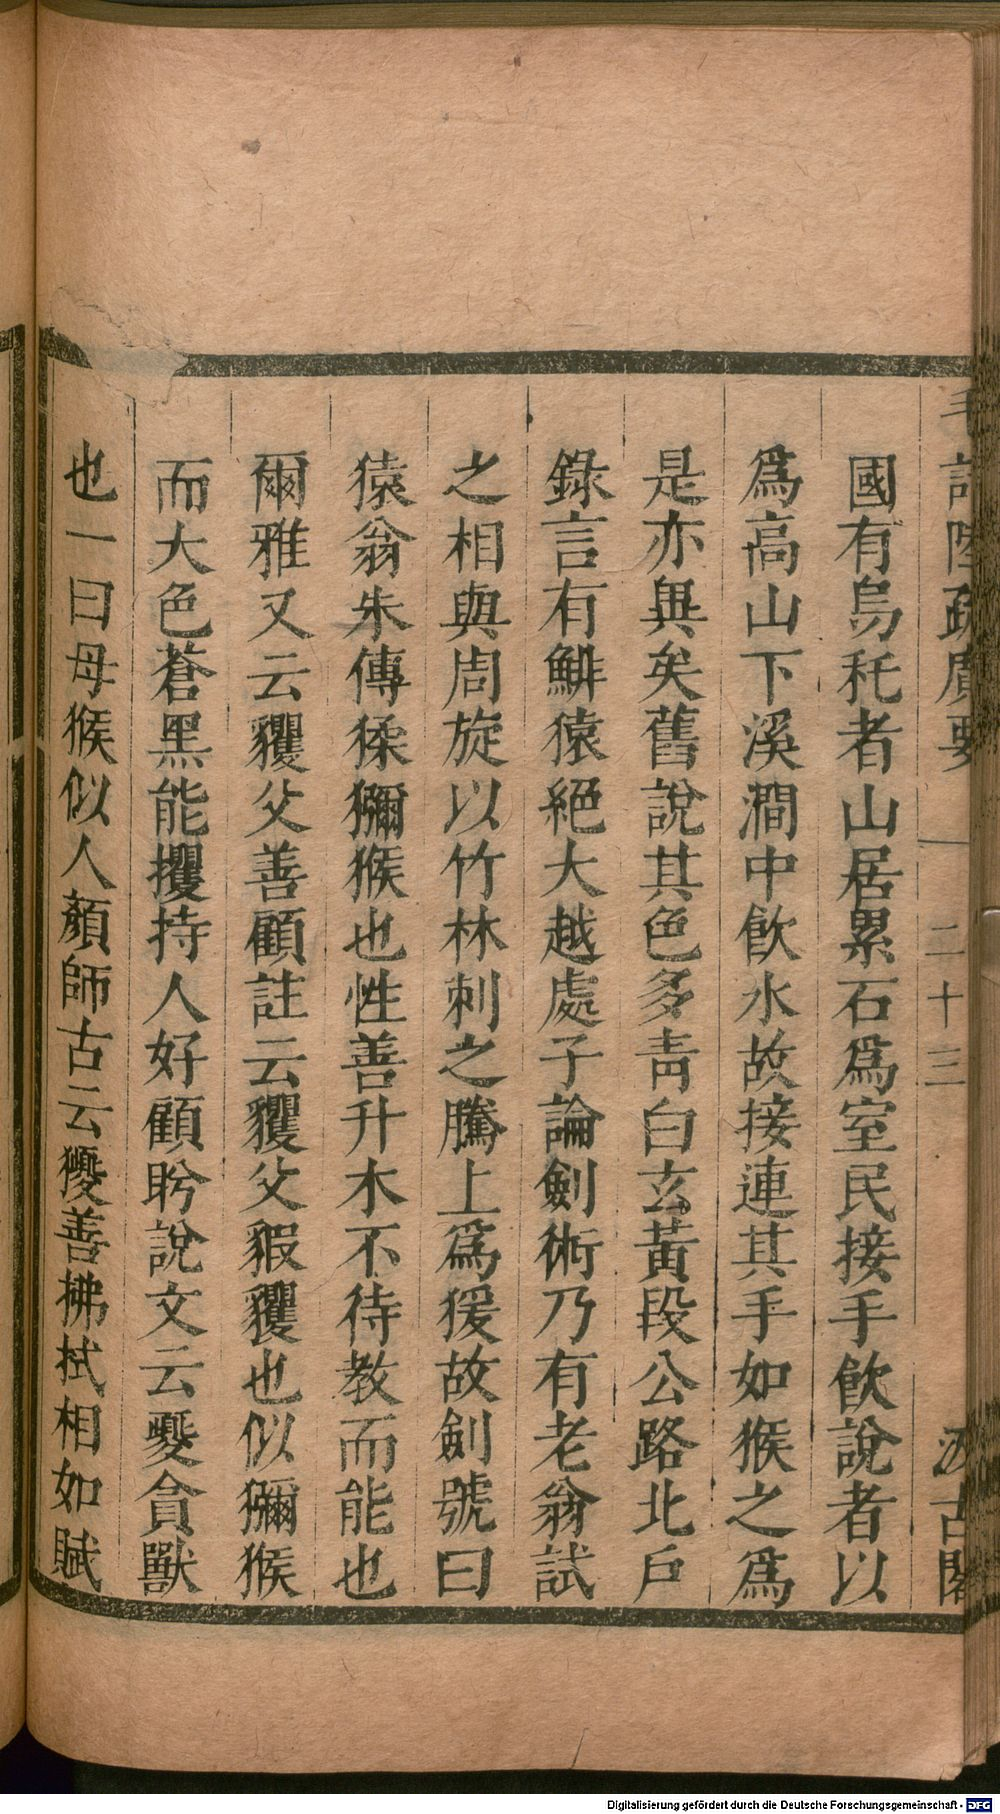 毛詩陸疏廣要 二十三 汲古閣
國有烏秅者山居累石爲室民接手飲說者以
爲高山下溪澗中飲水故接連其手如猴之爲
是亦異矣舊說其色多青白玄黃段公路北戶
錄言有鯡猿絕大越處子論劍術乃有老翁試
之相與周旋以竹林刺之騰上爲猨故劍號曰
猿翁朱傳猱獼猴也性善升木不待教而能也
爾雅又云玃父善顧註云玃父貑玃也似獼猴
而大色蒼黑能攫持人好顧盻說文云夒貪獸
也一曰母猴似人顏師古云獿善拂拭相如賦
Digitalisierung gefördert durch die Deutsche Forschungsgemeinschaft - DFG